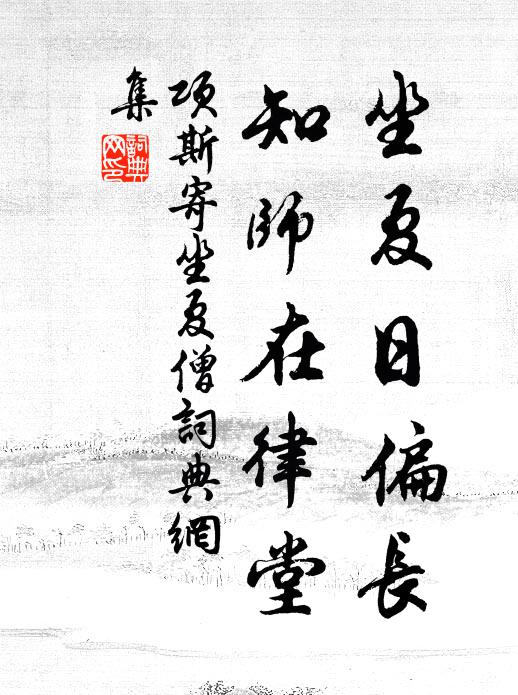 坐夏日偏長
知師在律堂
項斯寄坐夏僧詞典網
集
詞典網印